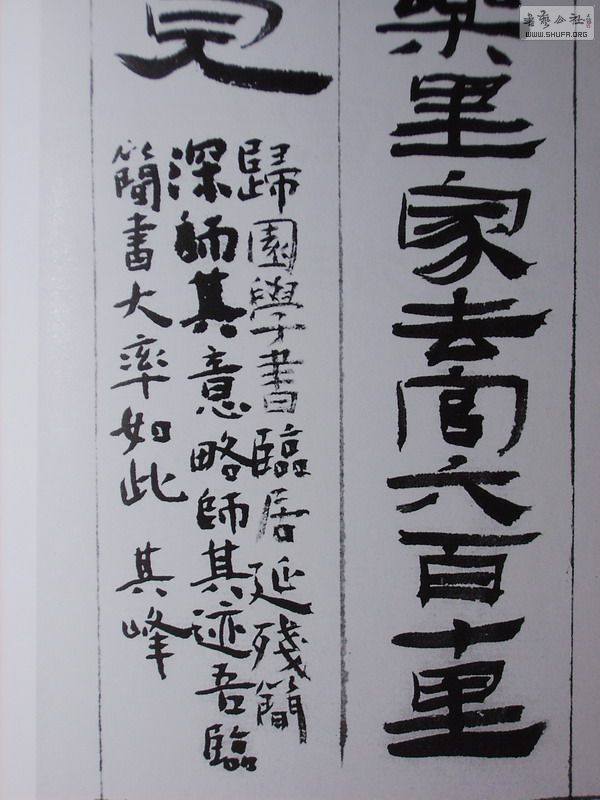 樂里家去官六百十里
見
歸園學書臨居延殘簡
深師其意略師其迹吾臨
簡書大率如此 其峰
书艺公社
WWW.SHUFA.ORG